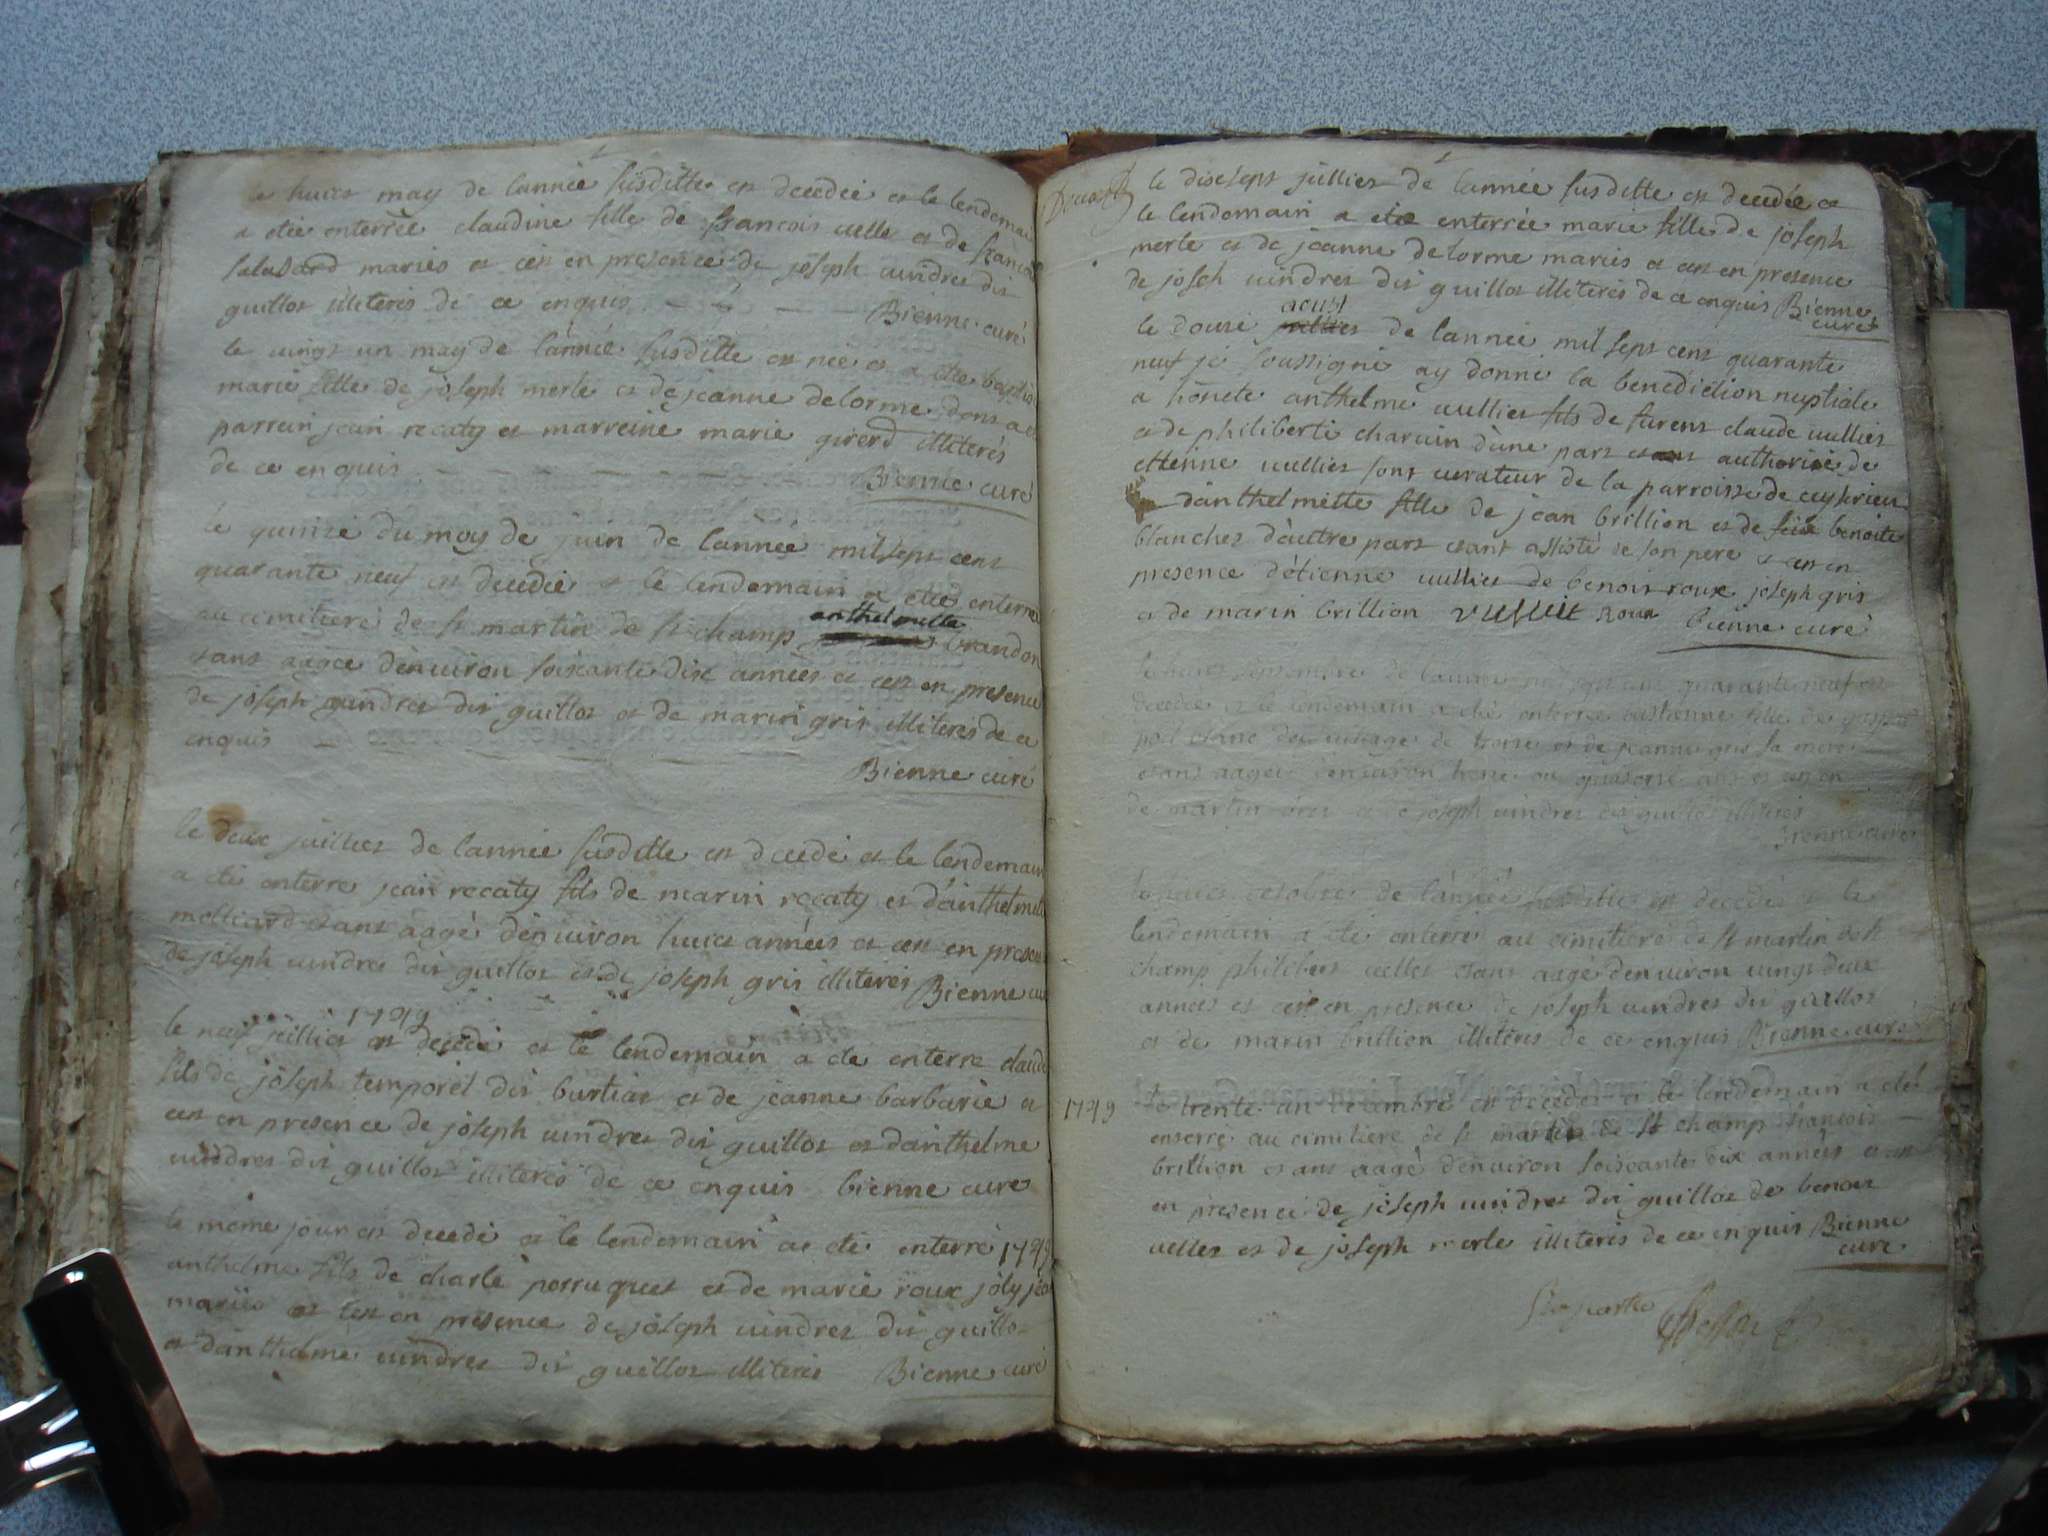 le huict may de lannée susditte est decedée et le lendemai
a etée enterrée claudine fille de francois velle et de francoi
salusard mariés et cest en presence de joseph vindret dit
guillot illiterés de ce enquis Bienne curé
le vingt un may de lannée susditte est née et a etée baptis
marie fille de joseph merle et de jeanne delorme dont a e
parrein jean recaty et marreine marie girerd illiterés
de ce enquis Bienne curé
le quinze du moy de juin de lannée mil sept cent
quarante neuf est decedée et le lendemain a etée enterrée
au cimitiere de st martin de st champ anthelmette brandon
etant aagée denviron soixante dix années et cest en presence
de joseph vindret dit guillot et de marin gris illiterés de ce
enquis
Bienne curé
le deux juillet de lannée susditte est decedé et le lendemain
a eté enterre jean recaty fils de marin recaty et danthelmet
molliard etant aagé denviron huict années et cest en presen
de joseph vindret dit guillot et de joseph gris illiterés Bienne cu
1749
le neuf juillet est decedé et le lendemain a ete enterre claude
fils de joseph temporel dit burtiat et de jeanne barbarie et
cest en presence de joseph vindret dit guillot et danthelme
vindret dit guillot illiterés de ce enquis bienne cure
le meme jour est decedé et le lendemain a eté enterré 1749
anthelme fils de charle perruquet et de marie roux joly jea
mariés et cest en presence de joseph vindret dit guillot
et danthelme vindret dit guillot illiterés Bienne curé
le dixsept juillet de lannée susditte est decedée et
le lendemain a etée enterrée marie fille de joseph
merle et de jeanne delorme mariés et cest en presence
de joseph vindret dit guillot illiterés de ce enquis Bienne
curé
aoust
le douze de lannée mil sept cent quarante
neuf je soussigné ay donné la benediction nuptiale
a honete anthelme vulliet fils de furent claude vulliet
et de philiberte charvin dune part etant authorisé de
ettienne vulliet sont curateur de la parroisse de ceyserieu
danthelmette fille de jean brillion et de benoite
blanchet dautre part etant assisté de son pere et cest en
presence détienne vulliet de benoit roux joseph gris
et de marin brillion vulliet Roux Bienne curé
septembre de lannée mil sept cent quarante neuf est
decedée et le lendemain a eté enterrée ettienne fille de
et de jeanne gris sa mere
etant aagée denviron treze ou quatorze ans et cest en
de martin et de joseph vindret dit guillot illiterés
Bienne curé
le huict octobre de lannée susditte est decedé et le
lendemain a eté enterré au cimitiere de st martin de st
champ philibert vellet etant aagé denviron vingt deux
années et cest en presence de joseph vindret dit guillot
et de marin brillion illiterés de ce enquis Bienne curé
1749 le trente un decembre est decedé et le lendemain a eté
enterré au cimitiere de st martin de st champ francois
brillion etant aagé denviron soixante dix années et cest
en presence de joseph vindret dit guillot de benoit
vellet et de joseph merle illiterés de ce enquis Bienne
curé